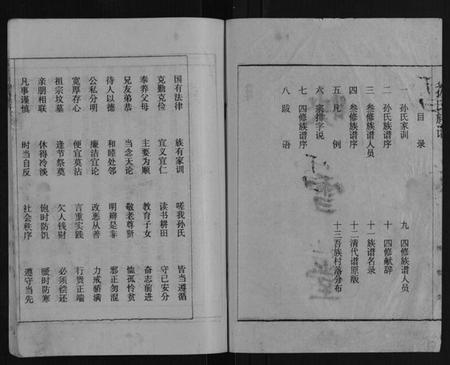 目录
一 孙氏家训
二 孙氏族谱序
三 叁修族谱人员
四 叁修族谱序
五 凡例
六 宗排字说
七 四修谱序
八 跋语
九 四修族谱人员
十 四修献辞
十一 族谱名录
十二 清代谱原版
十三 吾族村落分布
国有法律 族有家训 嗟我孙氏 皆当遵循
克勤克俭 宜义宜仁 读书耕田 守己安分
奉养父母 主要为顺 教育子女 奋志前进
兄友弟恭 当念天伦 敬老尊贤 恤孤怜贫
待人以德 和睦处邻 明辨是非 邪正勿混
公私分明 廉洁宜论 改恶从善 力戒骄满
宽厚存心 便宜莫沾 言重实践 行贵正端
祖宗坟墓 逢节祭奠 欠人钱财 必须偿还
亲朋相联 休得冷淡 饱时防饥 暖时防寒
凡事谨慎 时当自反 社会秩序 遵守当先